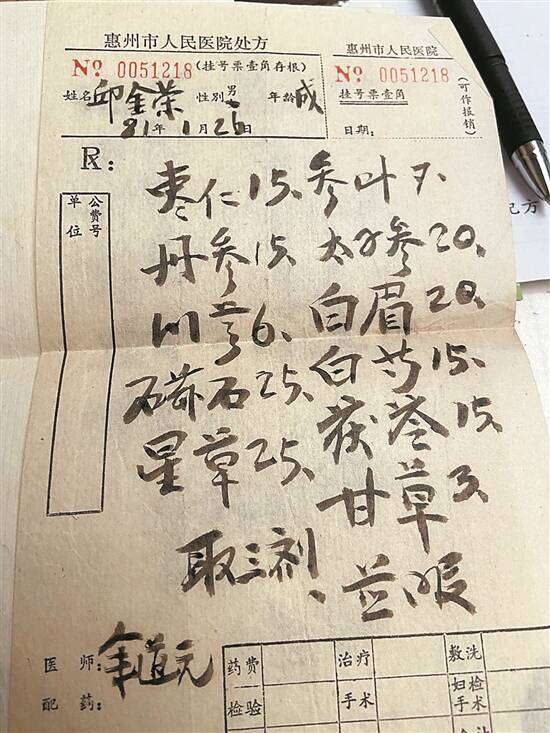 惠州市人民医院处方
No 0051218 (挂号票壹角存根)
姓名 邱金荣 性别 男 年龄 成
81年 1月 26日
惠州市人民医院
No 0051218
挂号票壹角
日期:
(可作报销)
R:
公费号
单位
枣仁15、参叶
丹参15、太子参20、
川芎6、白眉20、
石25、白芍15、
星草25、茯苓15、
甘草3、
取三剂、
医师:余道元
配药:
药费 治疗 敷洗
检验 手术 妇检
手术
记方